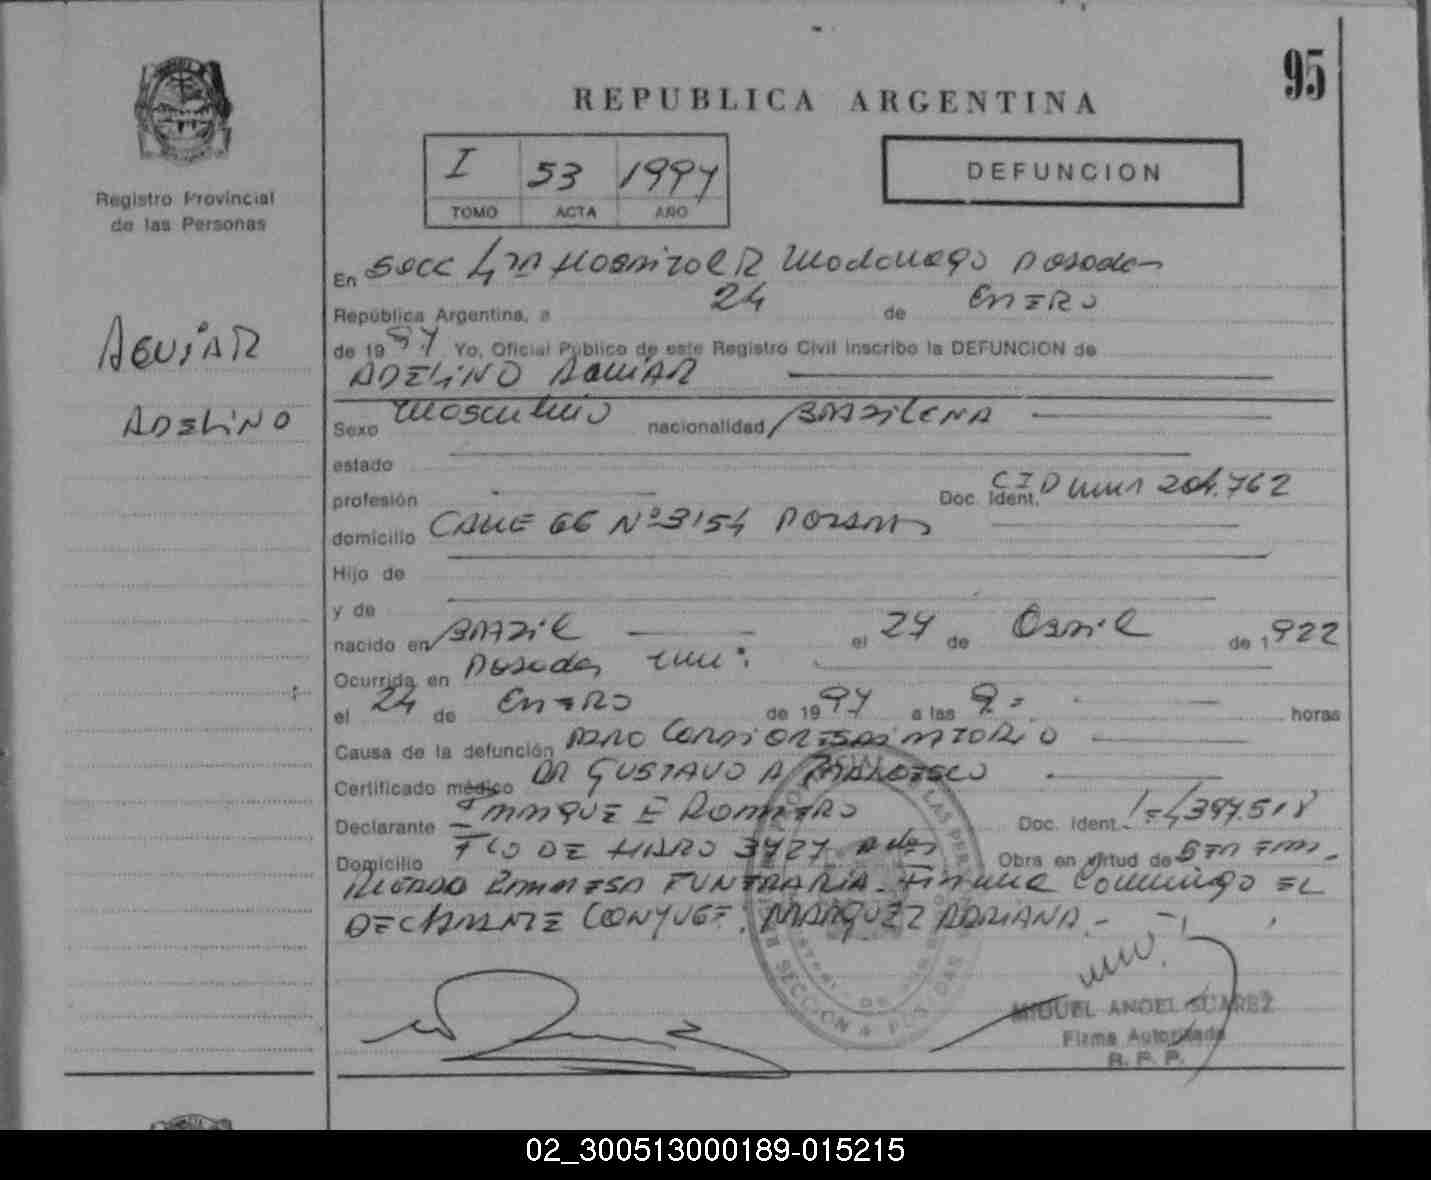 95
REPUBLICA ARGENTINA
I 53 1997
TOMO ACTA AÑO
DEFUNCION
Registro Provincial
de las Personas
AGUIAR
ADELINO
En Secc 4ta Hospital R Madariaga Posadas
República Argentina, a 24 de ENERO
de 1997 Yo, Oficial Público de este Registro Civil inscribo la DEFUNCION de
ADELINO AGUIAR
Sexo Masculino nacionalidad BRAZILENA
estado
profesión Doc. Ident. CID 204.762
domicilio CALLE 66 Nº 3154 POSADAS
Hijo de
y de
nacido en BRAZIL el 27 de ABRIL de 1922
Ocurrida en Posadas
el 24 de ENERO de 1997 a las 9 horas
Causa de la defunción PARO CARDIORESPIRATORIO
Certificado médico DR GUSTAVO A
Declarante ENRIQUE E ROMERO Doc. Ident. 14.397.518
Domicilio FCO DE HARO 3727 Pdas Obra en virtud de
EMPRESA FUNERARIA. Firma Conmigo EL
DECLARANTE CONYUGE: MARQUEZ ADRIANA.-
SECCION POSADAS
MIGUEL ANGEL SUAREZ
Firma Autorizada
R. P. P.
02_300513000189-015215